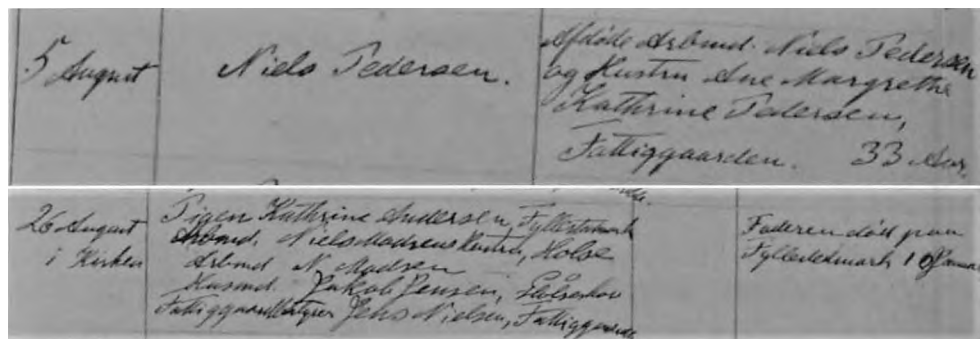 5 August
Niels Pedersen.
Afdøde Arbmd. Niels Pedersen
og Hustru Ane Margrethe
Kathrine Pedersen,
Fattiggaarden. 33 Aar.
26 August
i Kirken
Pigen Kathrine Andersen,
Arbmd. Niels Madsens Hustru, Holse
Arbmd N. Madsen
Husmd. Jakob Jensen,
Fattiggaardbestyrer Jens Nielsen, Fattiggaarden
Faderen død paa
1 Januar